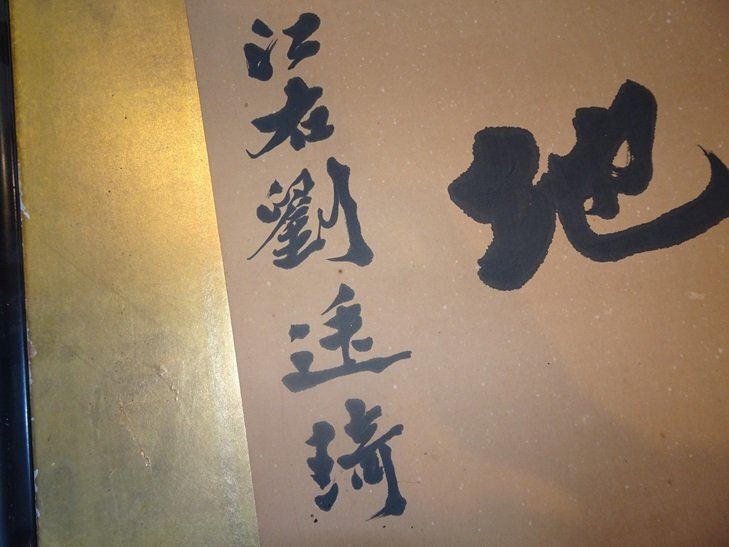 地
江右劉廷琦